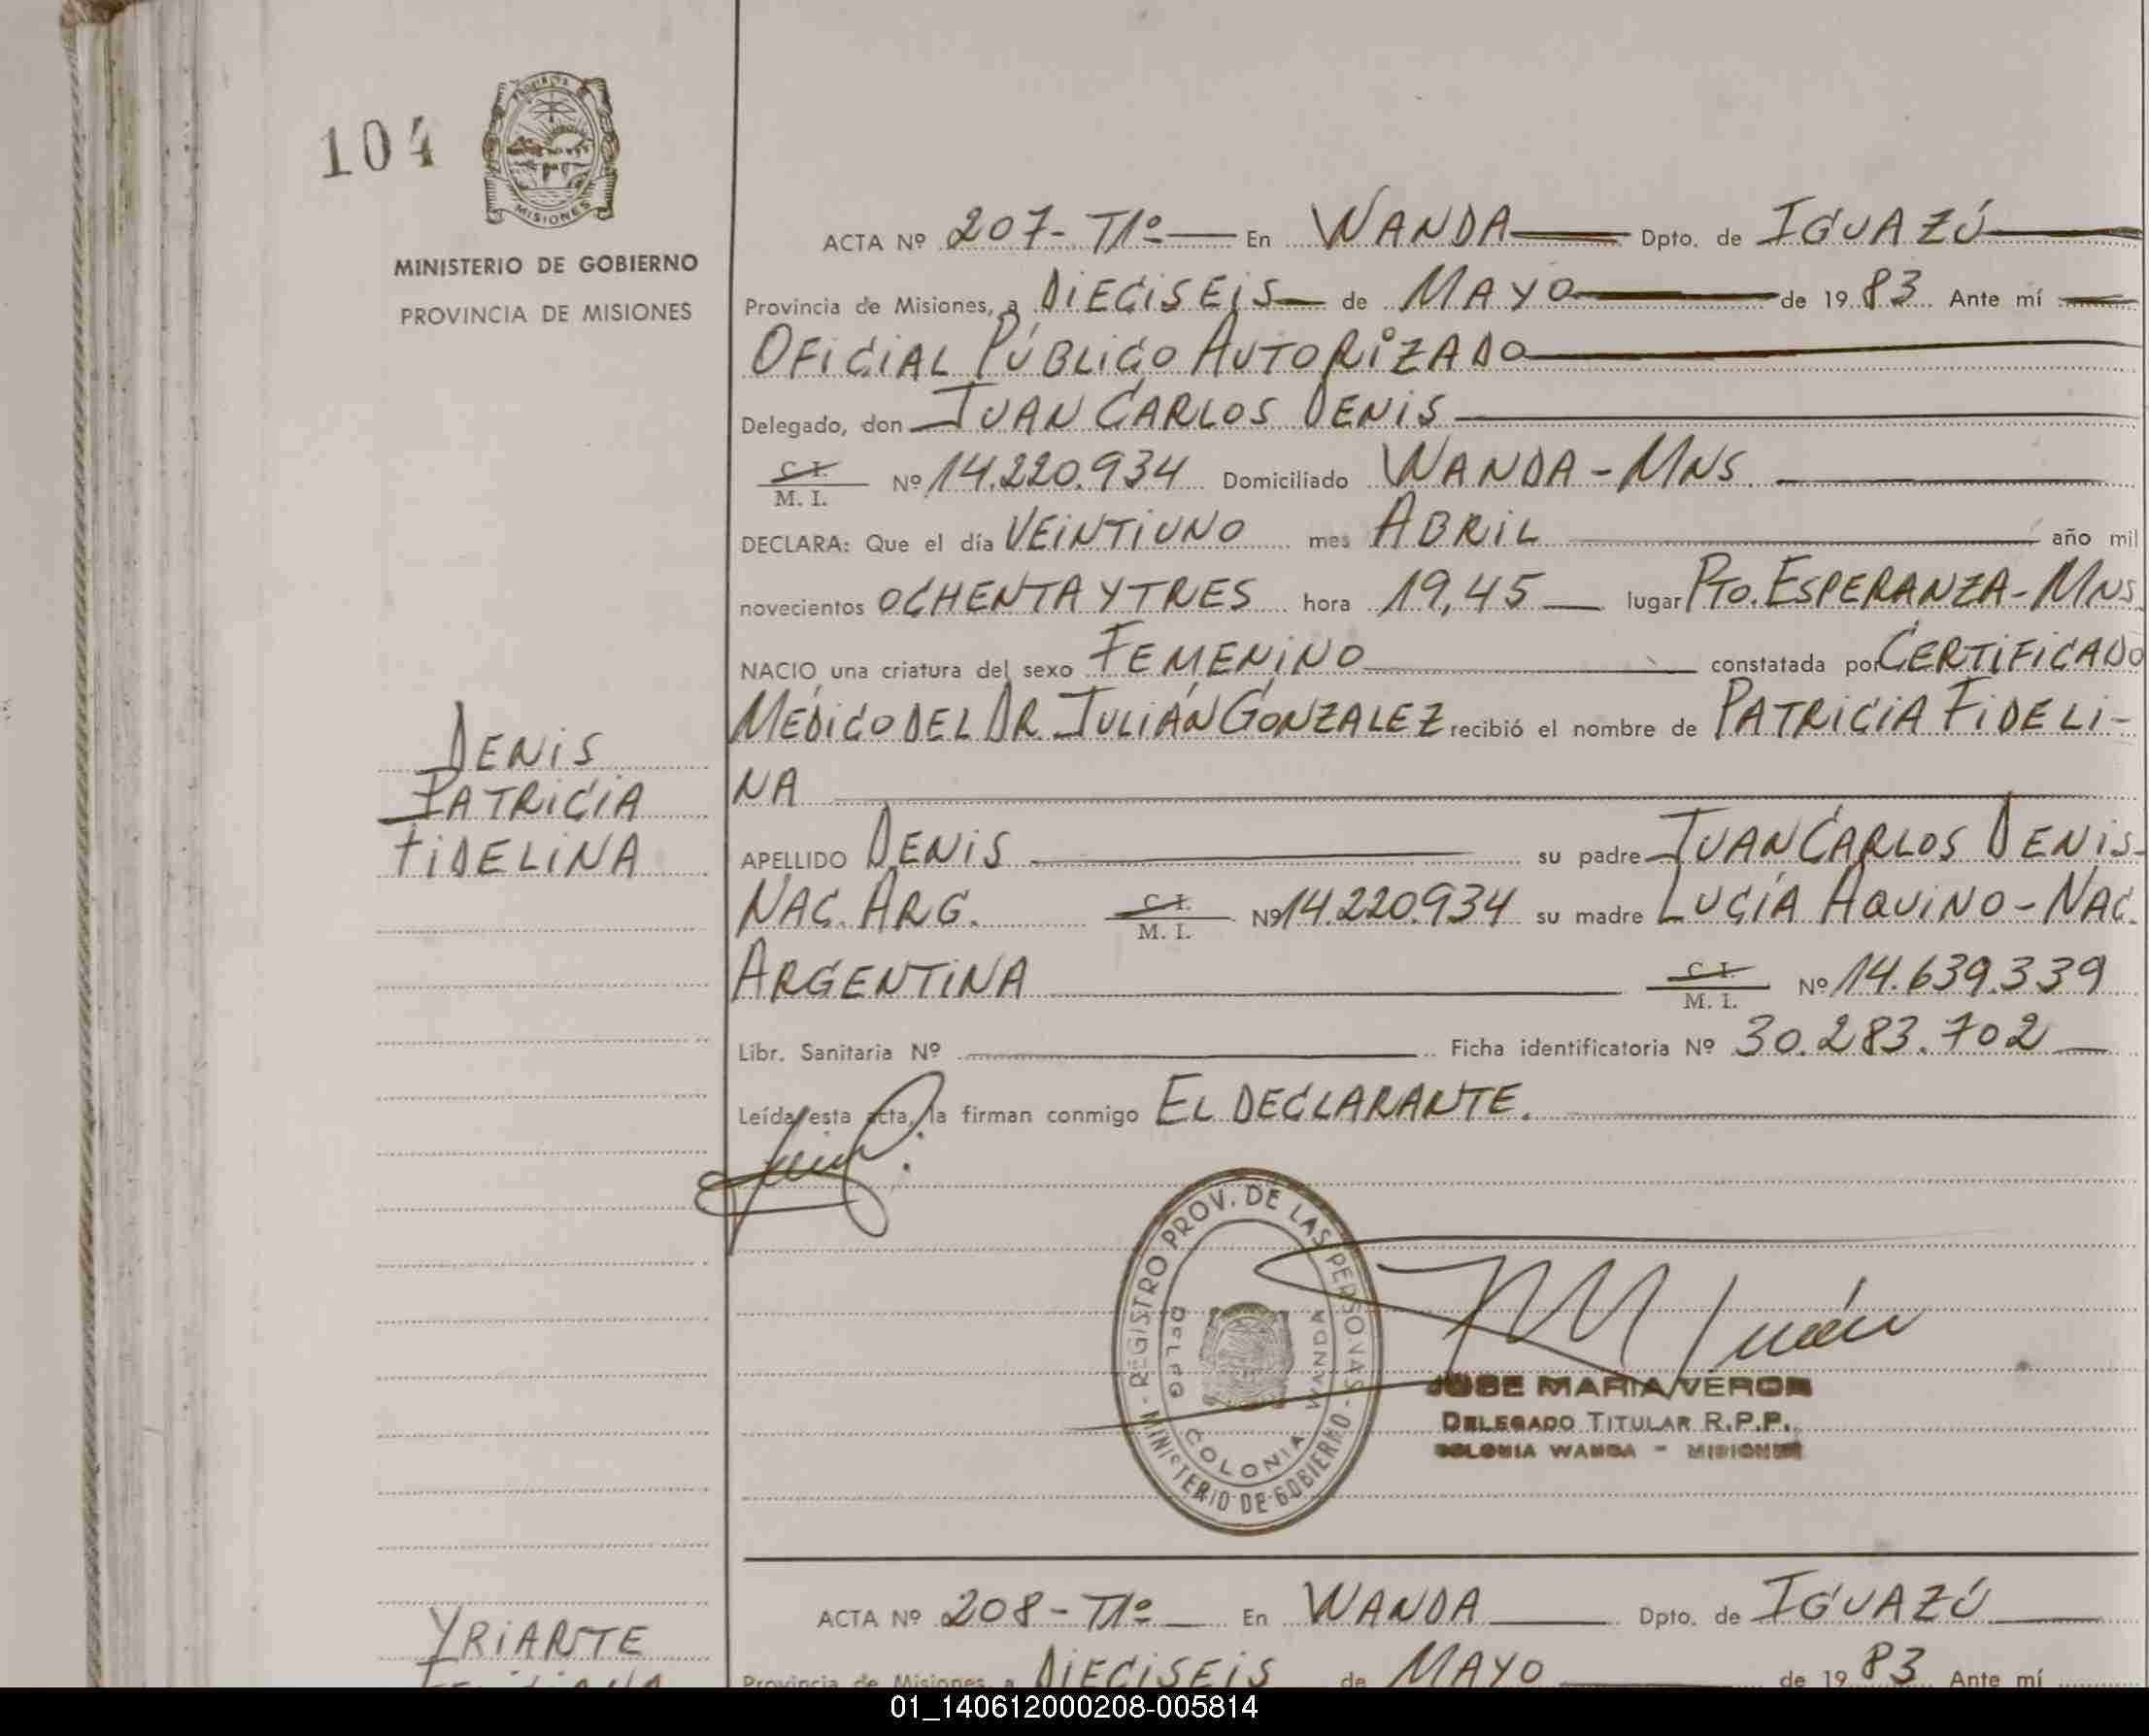 104
MISIONES
MINISTERIO DE GOBIERNO
PROVINCIA DE MISIONES
ACTA Nº 207- T1º En WANDA Dpto. de IGUAZÚ
Provincia de Misiones, a DIECISEIS de MAYO de 1983 Ante mí
OFICIAL PÚBLICO AUTORIZADO
Delegado, don JUAN CARLOS DENIS
C. I.
M. I.
Nº 14.220.934 Domiciliado WANDA - MNS.
DECLARA: Que el día VEINTIUNO mes ABRIL año mil
novecientos OCHENTA Y TRES hora 19,45 lugar PTO. ESPERANZA - MNS
NACIO una criatura del sexo FEMENINO constatada por CERTIFICADO
MÉDICO DEL DR. JULIÁN GONZALEZ recibió el nombre de PATRICIA FIDELI-
NA
DENIS
PATRICIA
FIDELINA
APELLIDO DENIS su padre JUAN CARLOS DENIS-
NAC. ARG. C. I. M. I. Nº 14.220.934 su madre LUCÍA AQUINO - NAC.
ARGENTINA C. I. M. I. Nº 14.639.339
Libr. Sanitaria Nº Ficha identificatoria Nº 30.283.702
Leída esta acta, la firman conmigo EL DECLARANTE.
REGISTRO PROV. DE LAS PERSONAS - MINISTERIO DE GOBIERNO -
DELEG COLONIA WANDA
JOSE MARIA VERON
DELEGADO TITULAR R.P.P.
COLONIA WANDA - MISIONES
ACTA Nº 208 - T1º En WANDA Dpto. de IGUAZÚ
YRIARTE
Provincia de Misiones a DIECISEIS de MAYO de 1983 Ante mí
01_140612000208-005814